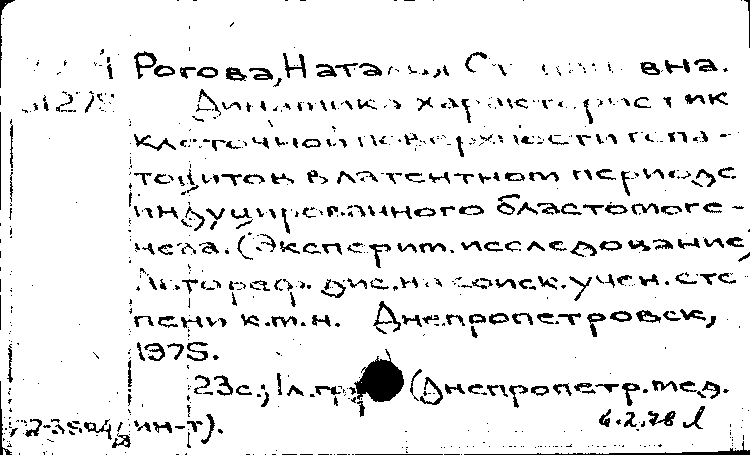 Рогова, Наталия
Динамика характеристик
клеточной поверхности гепа-
тоцитов в латентном периоде
индуцированного бластомоге-
неза. (Эксперим. исследование)
Автореф. дис. на соиск. учен. сте-
пени к.м.н. Днепропетровск,
1975.
23с.; 1л. (Днепропетр. мед.
ин-т).
6.2.78